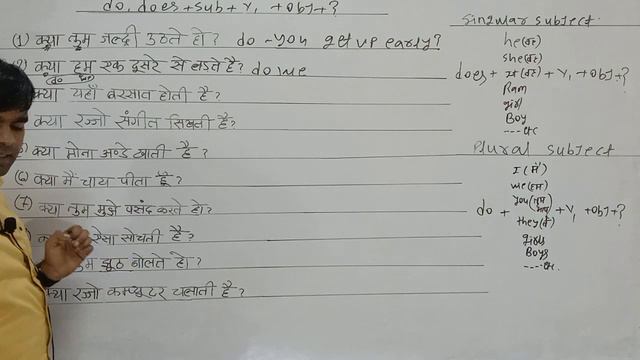 do, does + sub + V, + obj + ?
(1) क्या तुम जल्दी उठते हो? do - you get up early?
क्या हम एक दूसरे से लडते है? do we
क्या यहाँ बरसात होती है?
क्या रज्जो संगीत सिखती है?
क्या मोना अण्डे खाती है?
(6) क्या मैं चाय पीता हूँ?
(7) क्या तुम मुझे पसंद करते हो?
ऐसा सोचती है?
झूठ बोलते हो?
क्या रज्जो कम्प्युटर चलाती है?
Singular subject
he (वह)
she (वह)
does + it (वह) + V, + obj + ?
Ram
girl
Boy
---- etc
Plural subject
I (मैं)
we (हम)
do + you (तुम आप) + V, + obj + ?
they (वे)
girls
Boys
---- etc.